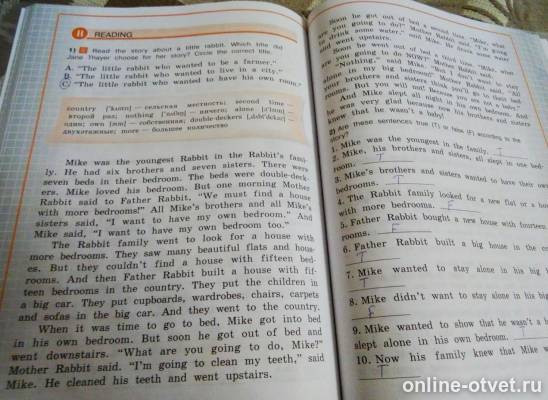 II READING
1) Read the story about a little rabbit. Which title did
Jane Thayer choose for her story? Circle the correct title.
A. "The little rabbit who wanted to be a farmer."
B. "The little rabbit who wanted to live in a city."
C. "The little rabbit who wanted to have his own room."
country ['kʌntri] — сельская местность; second time —
второй раз; nothing ['nʌθɪŋ] — ничего; alone [ə'ləun] —
один; own [əun] — собственная; double-deckers [,dʌbl'dekəz] —
двухэтажные; more — большее количество
Mike was the youngest Rabbit in the Rabbit's fami-
ly. He had six brothers and seven sisters. There were
seven beds in their bedroom. The beds were double-deck-
ers. Mike loved his bedroom. But one morning Mother
Rabbit said to Father Rabbit, "We must find a house
with more bedrooms!" All Mike's brothers and all Mike's
sisters said, "I want to have my own bedroom." And
Mike said, "I want to have my own bedroom too."
The Rabbit family went to look for a house with
more bedrooms. They saw many beautiful flats and hous-
es. But they couldn't find a house with fifteen bed-
rooms. And then Father Rabbit built a house with fif-
teen bedrooms in the country. They put the children in
a big car. They put cupboards, wardrobes, chairs, carpets
and sofas in the big car. And they went to the country.
When it was time to go to bed, Mike got into bed
in his own bedroom. But soon he got out of bed and
went downstairs. "What are you going to do, Mike?"
Mother Rabbit said. "I'm going to clean my teeth," said
Mike. He cleaned his teeth and went upstairs.
Soon he got out of bed a second time. "Mike, what
are you going to do?" Mother Rabbit said. "I'm going
to drink some water," said Mike. He drank
and went upstairs.
Soon he went out of bed a third time. "Mike, what
are you going to do NOW?" Mother Rabbit
"Nothing," said Mike. "But I don't to stay
alone in my big bedroom!"
your brothers and sisters
rooms. But you will
And Mike slept all night in his own bed-
he was very glad because his brothers and
knew that he wasn't a baby!
2) Are these sentences true (T) or false (F) according to the
story?
1. Mike was the youngest in the family. T
2. Mike, his brothers and sisters, all slept in one bed-
room. T
3. Mike's brothers and sisters wanted to have their own
bedrooms. T
4. The Rabbit family looked for a new flat or a hou
with more bedrooms. F
5. Father Rabbit bought a new house with fourteen
rooms. F
6. Father Rabbit built a big house in the co
T
7. Mike wanted to stay alone in his big
T
8. Mike didn't want to stay alone in his big
F
9. Mike wanted to show that he wasn't a
slept alone in his own bedroom.
10. Now his family knew that Mike w
T
online-otvet.ru